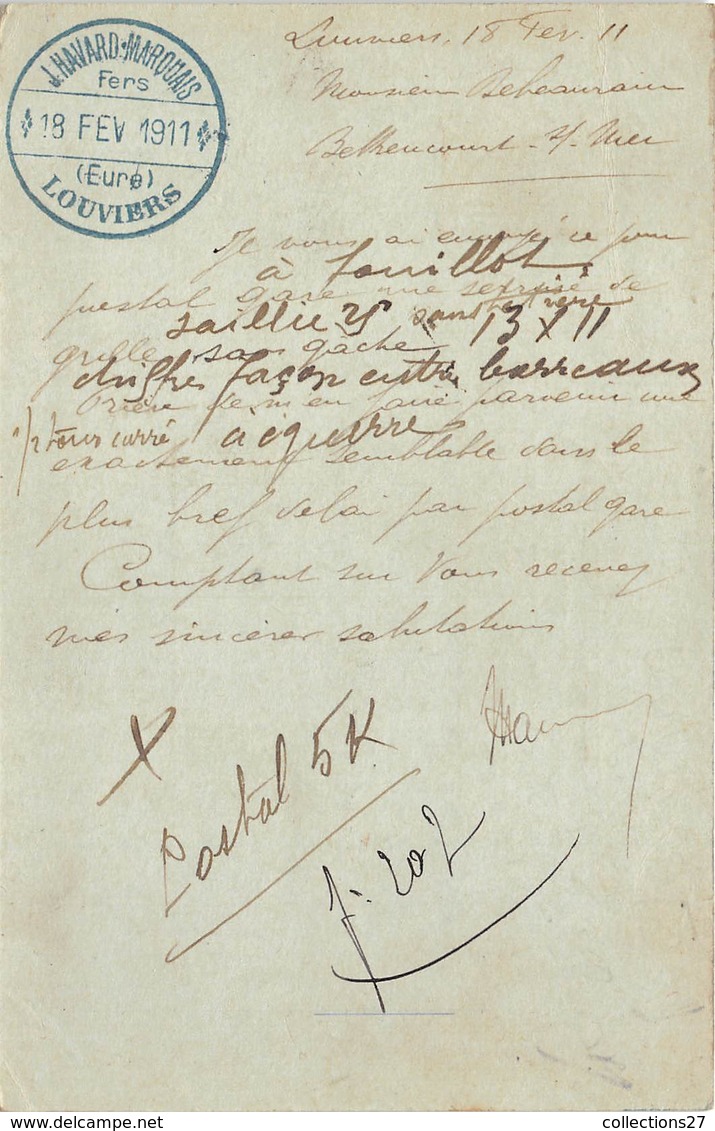 J. HAVARD-MARQUAIS
Fers
18 FEV 1911
(Eure)
LOUVIERS
Louviers, 18 Fev. 11
Monsieur Beheaurain
Bethencourt s/ Mer
Je vous ai envoyé ce jour
à fouillot
postal gare une serrure de
saillie 25 13 x 11
grille sans gâche
chiffres façon entre barreaux
Prière de m'en faire parvenir une
1/2 tour carré à équerre
exactement semblable dans le
plus bref delai par postal gare
Comptant sur Vous recevez
mes sincères salutations
Postal 5 K
f. 207
collections27